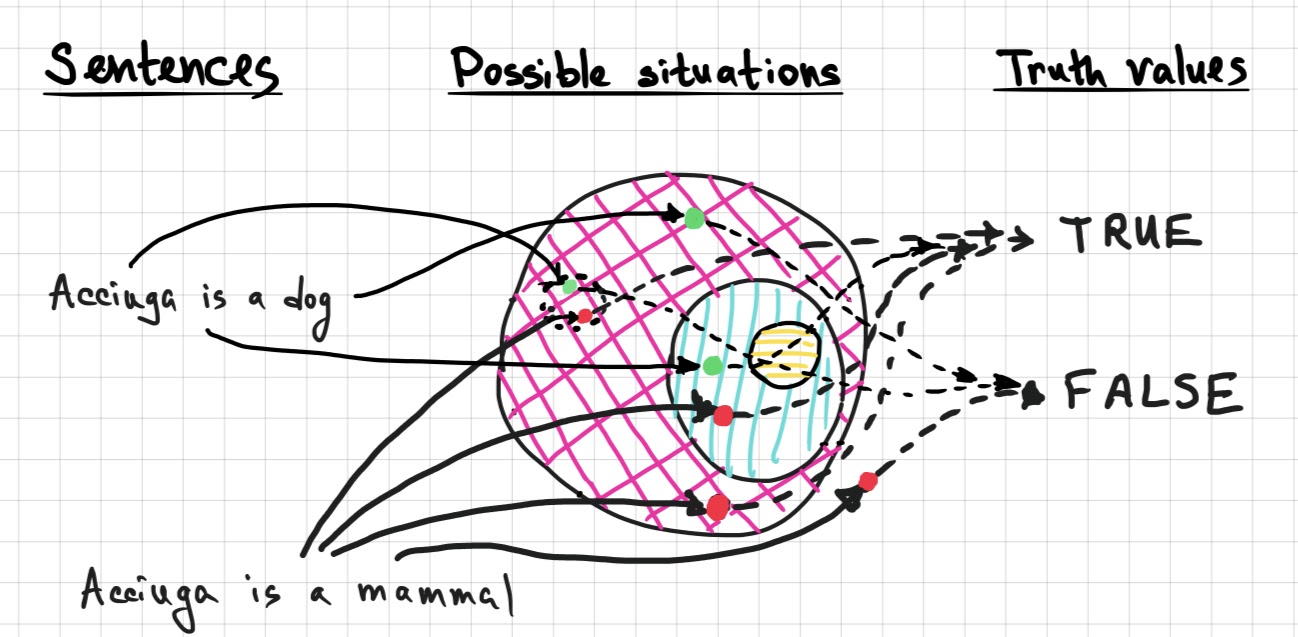 Sentences
Possible situations
Truth values
TRUE
Acciuga is a dog
FALSE
Acciuga is a mammal